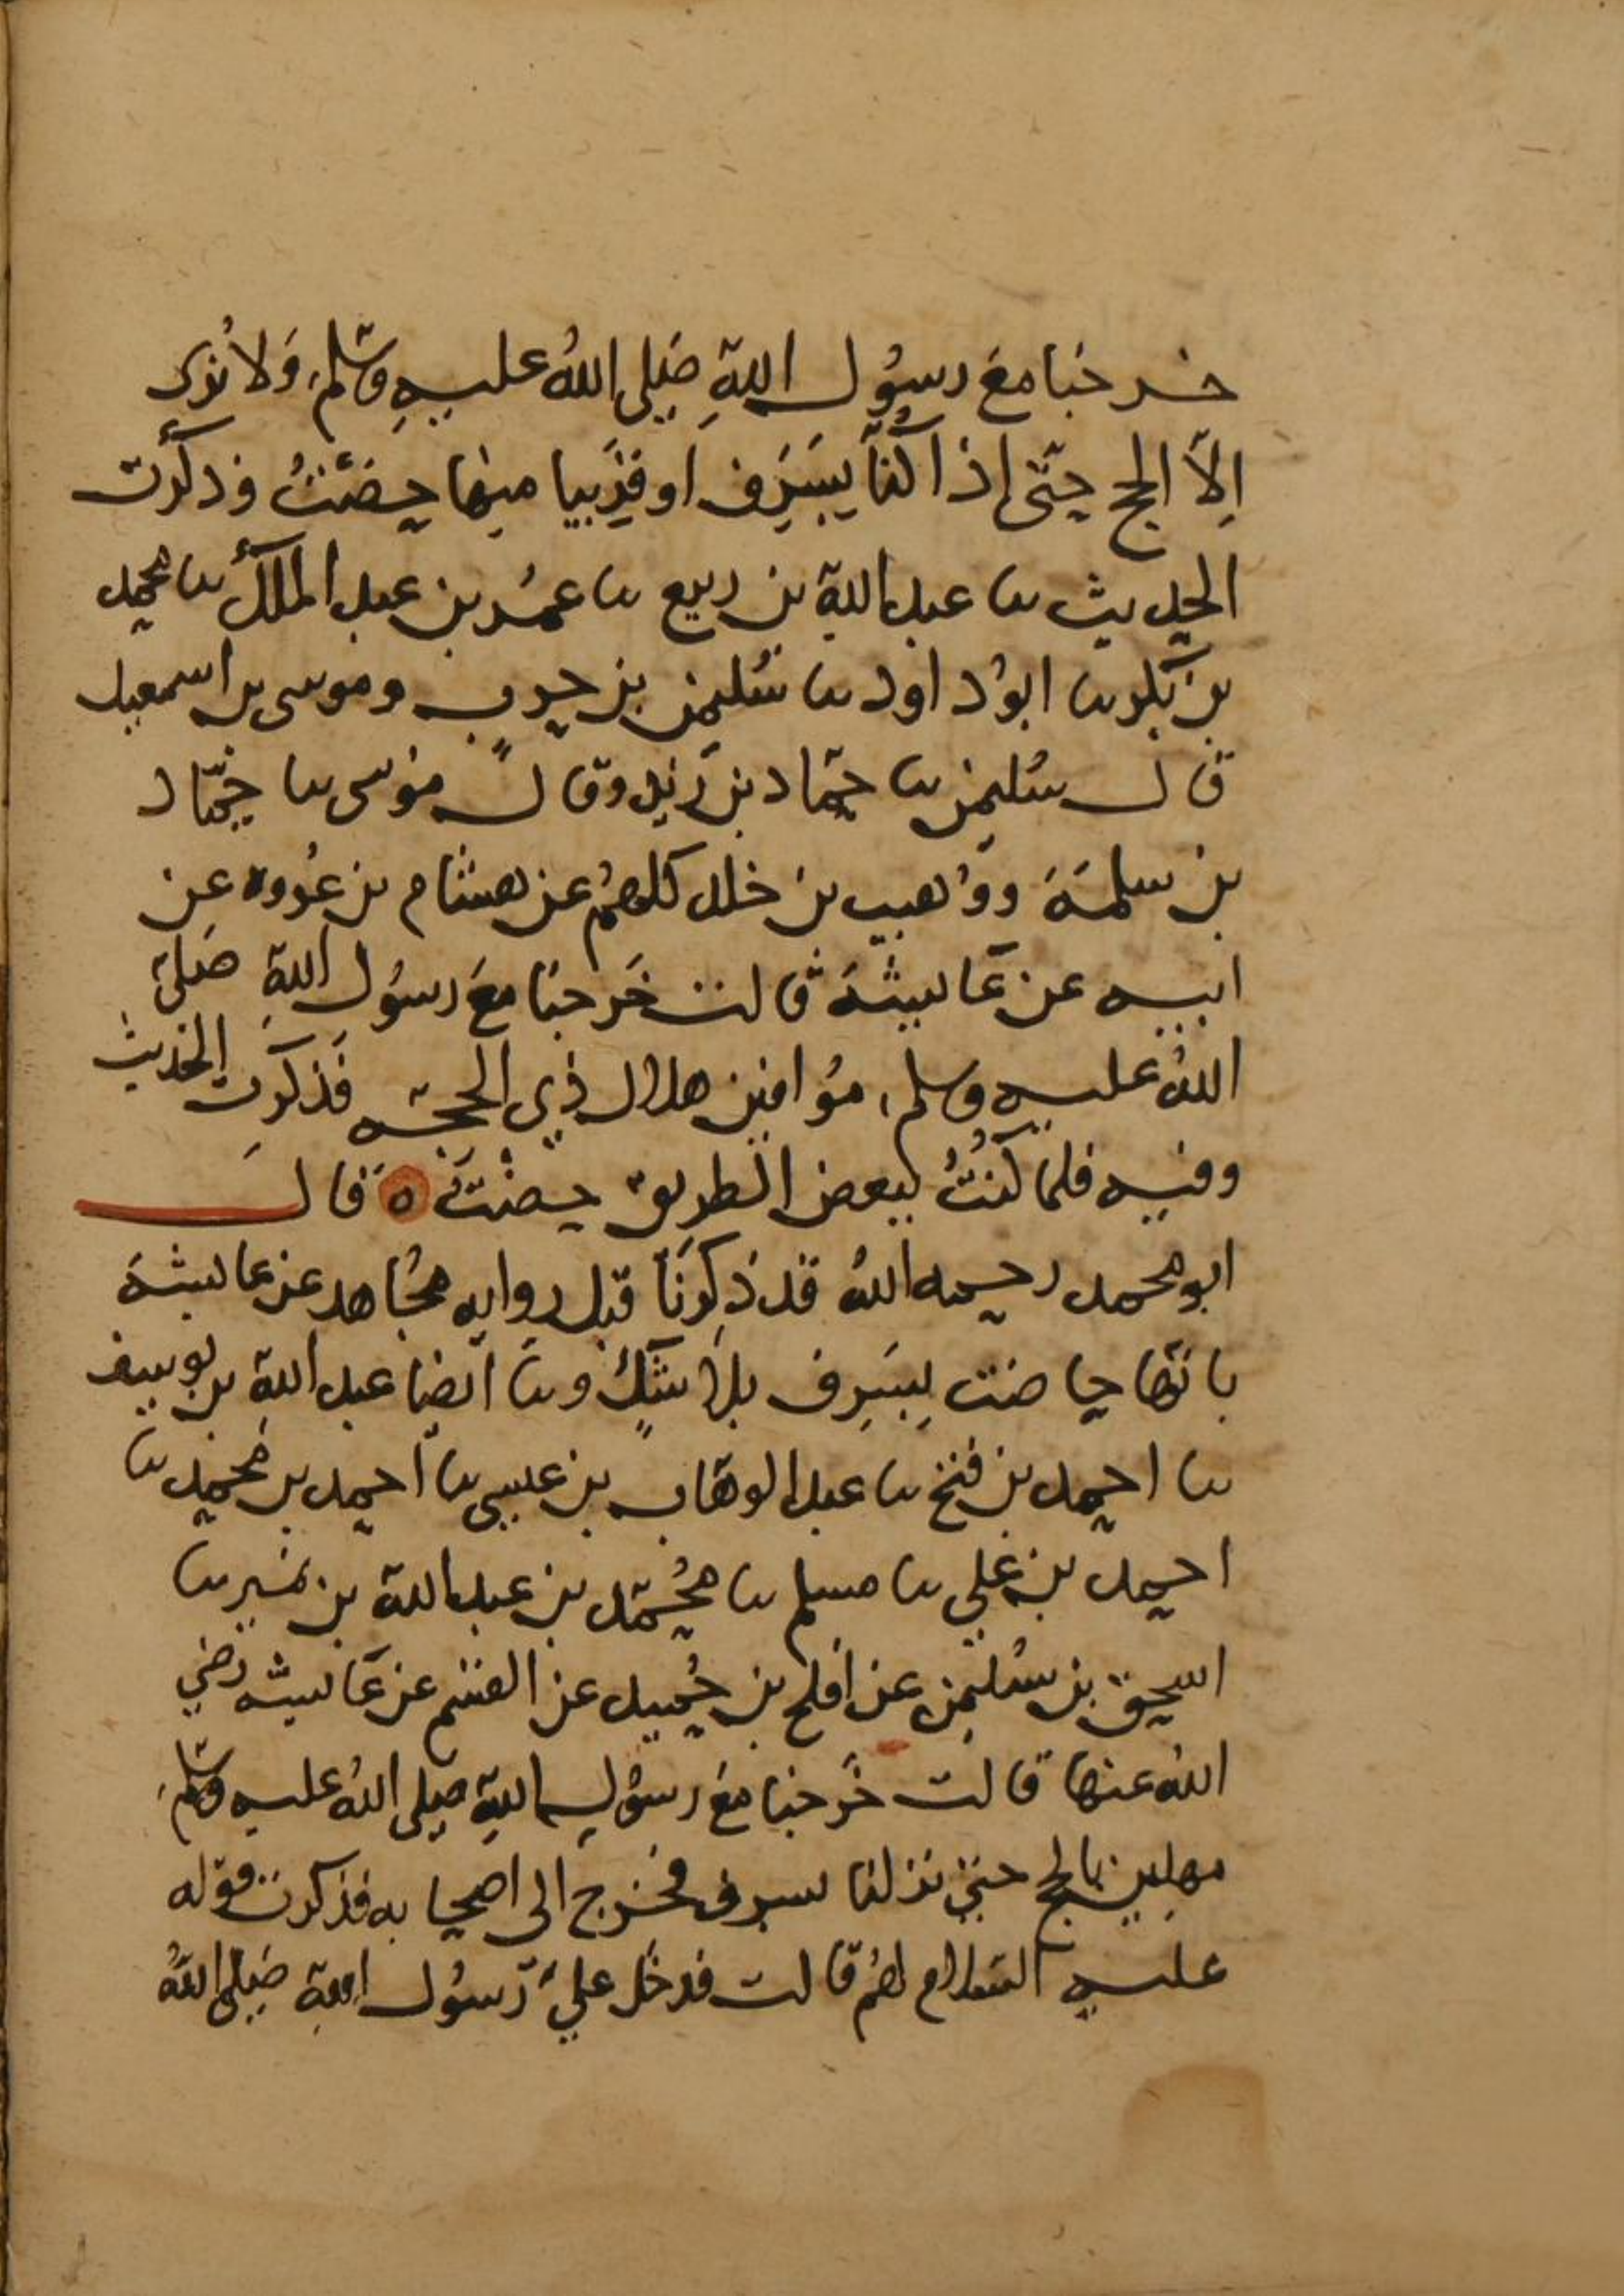 خرجنا مع رسول اللهِ صَلى اللهُ عليهِ وسّلم، وَلا نُرى
اِلاّ الحج حتّى إذا كنّا بِسَرِف او قَرِيبا منها حِضْتُ فذكرت
الحديث نا عبد الله بن ربيع نا عمر بن عبد الملك نا محمد
بن بكر نا ابو داود نا سُليمن بن حرب وموسى بن اسمعيل
قال سُليمن نا حمّاد بن زيد وقال موسى نا حمّاد
بن سلمة ووُهيب بن خلد كلهُم عن هشام بن عُروه عن
ابيه عن عَايشة قالت خَرجنَا مَعَ رسُول اللهِ صَلى
اللهُ عليه وسلم، مُوافين هلال ذي الحجّه فَذكرَت الحَديث
وفيه فلما كُنتُ ببعض الطريق حِضْتُ ه قَال
ابو محمد رحمه اللهُ قد ذكرنَا قبل روايه مُجاهد عن عايشة
بانّها حاضت بِسَرِف بلا شَكٍّ ونا ايضا عبد الله بن يوسف
نا احمد بن فتح نا عبد الوهّاب بن عيسى نا احمد بن محمد نا
احمد بن علي نا مسلم نا مُحمّد بن عبد الله بن نمير نا
اسحق بن سُليمن عن افلح بن حُميد عن القسم عن عَايشه رضي
اللهُ عنها قالت خَرجنا مَعَ رسُول اللهِ صلى اللهُ عليه وسّلم،
مهلين بالحج حتى نزلنا بسرف فخرج الى اصحابه فذكرت قوله
عليه السّلام لهُم قالت فدخَل عليَّ رّسُول اللهِ صَلى اللهُ